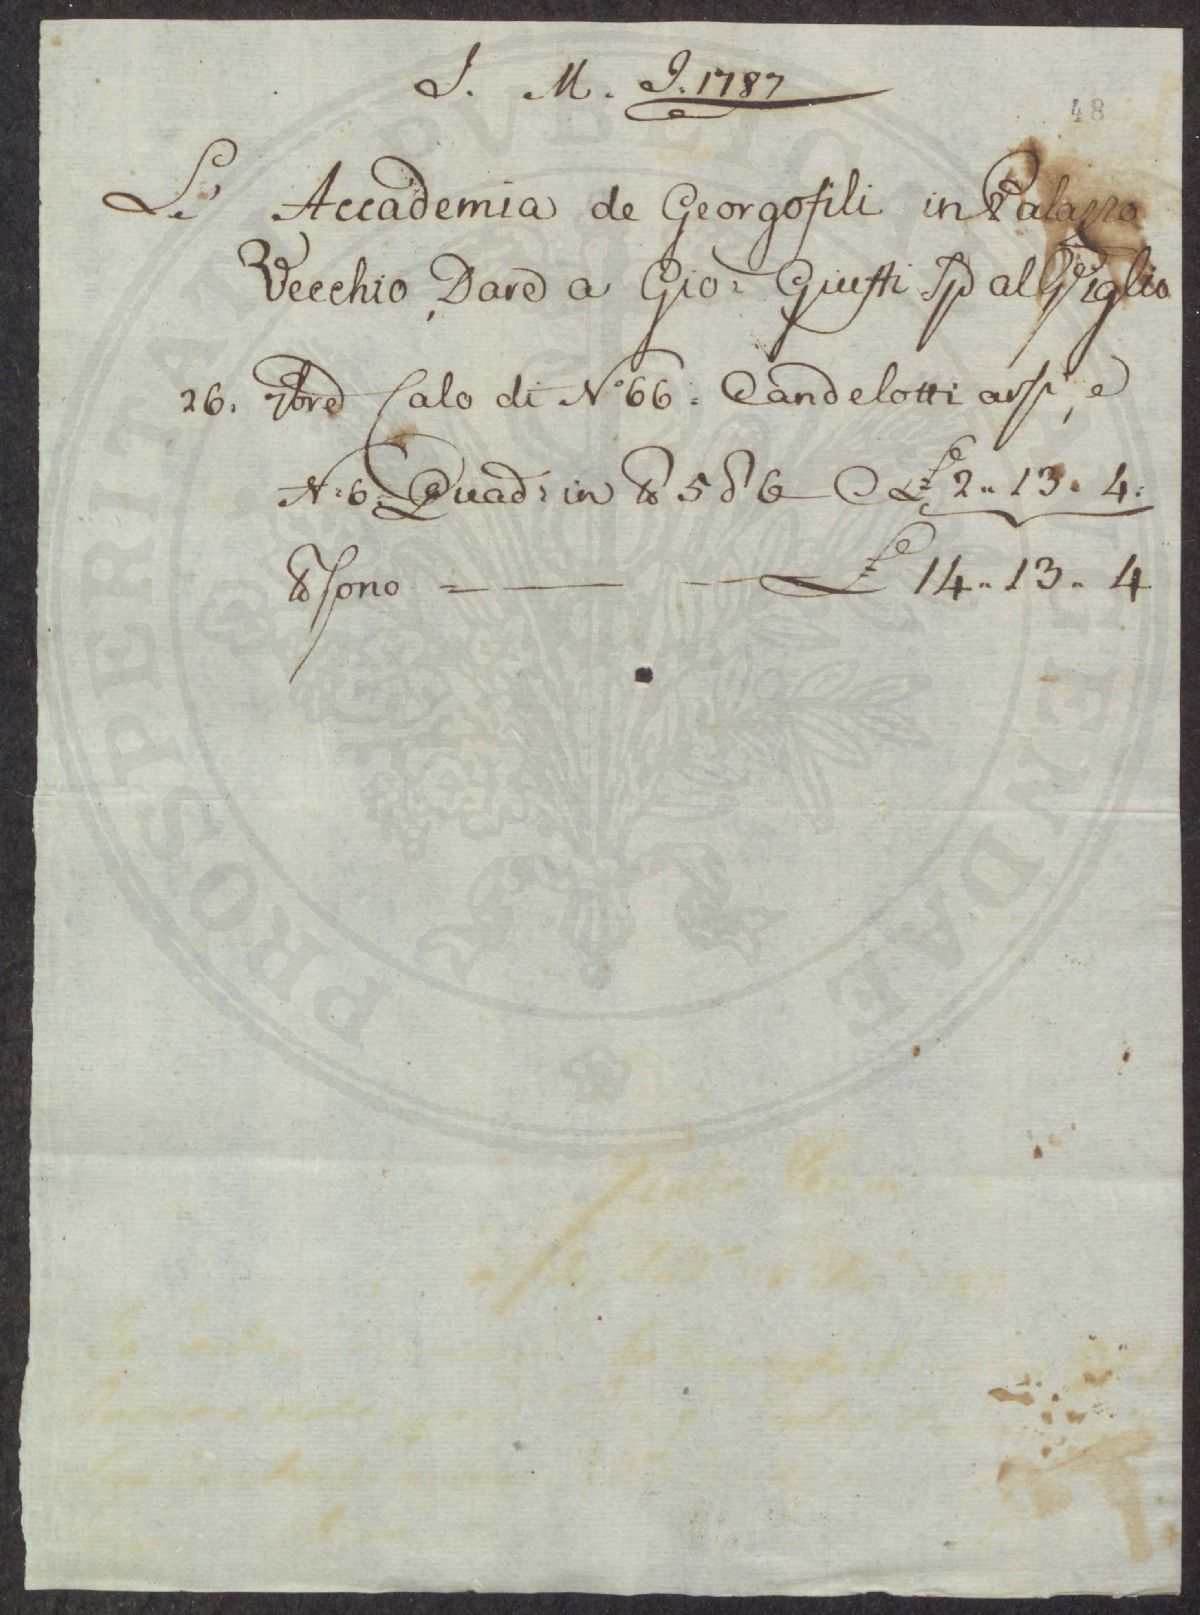 J. M. J. 1787
48
L' Accademia de Georgofili in Palazzo
Vecchio Dare a Gio: Giusti Sp al Giglio
26. 7bre Calo di N° 66: Candelotti arsi, e
N: 6: Quad: in 5 6 £ 2.. 13. 4:
Sono = £ 14.. 13.. 4
PROSPERITATI PUBLICAE AUGENDAE